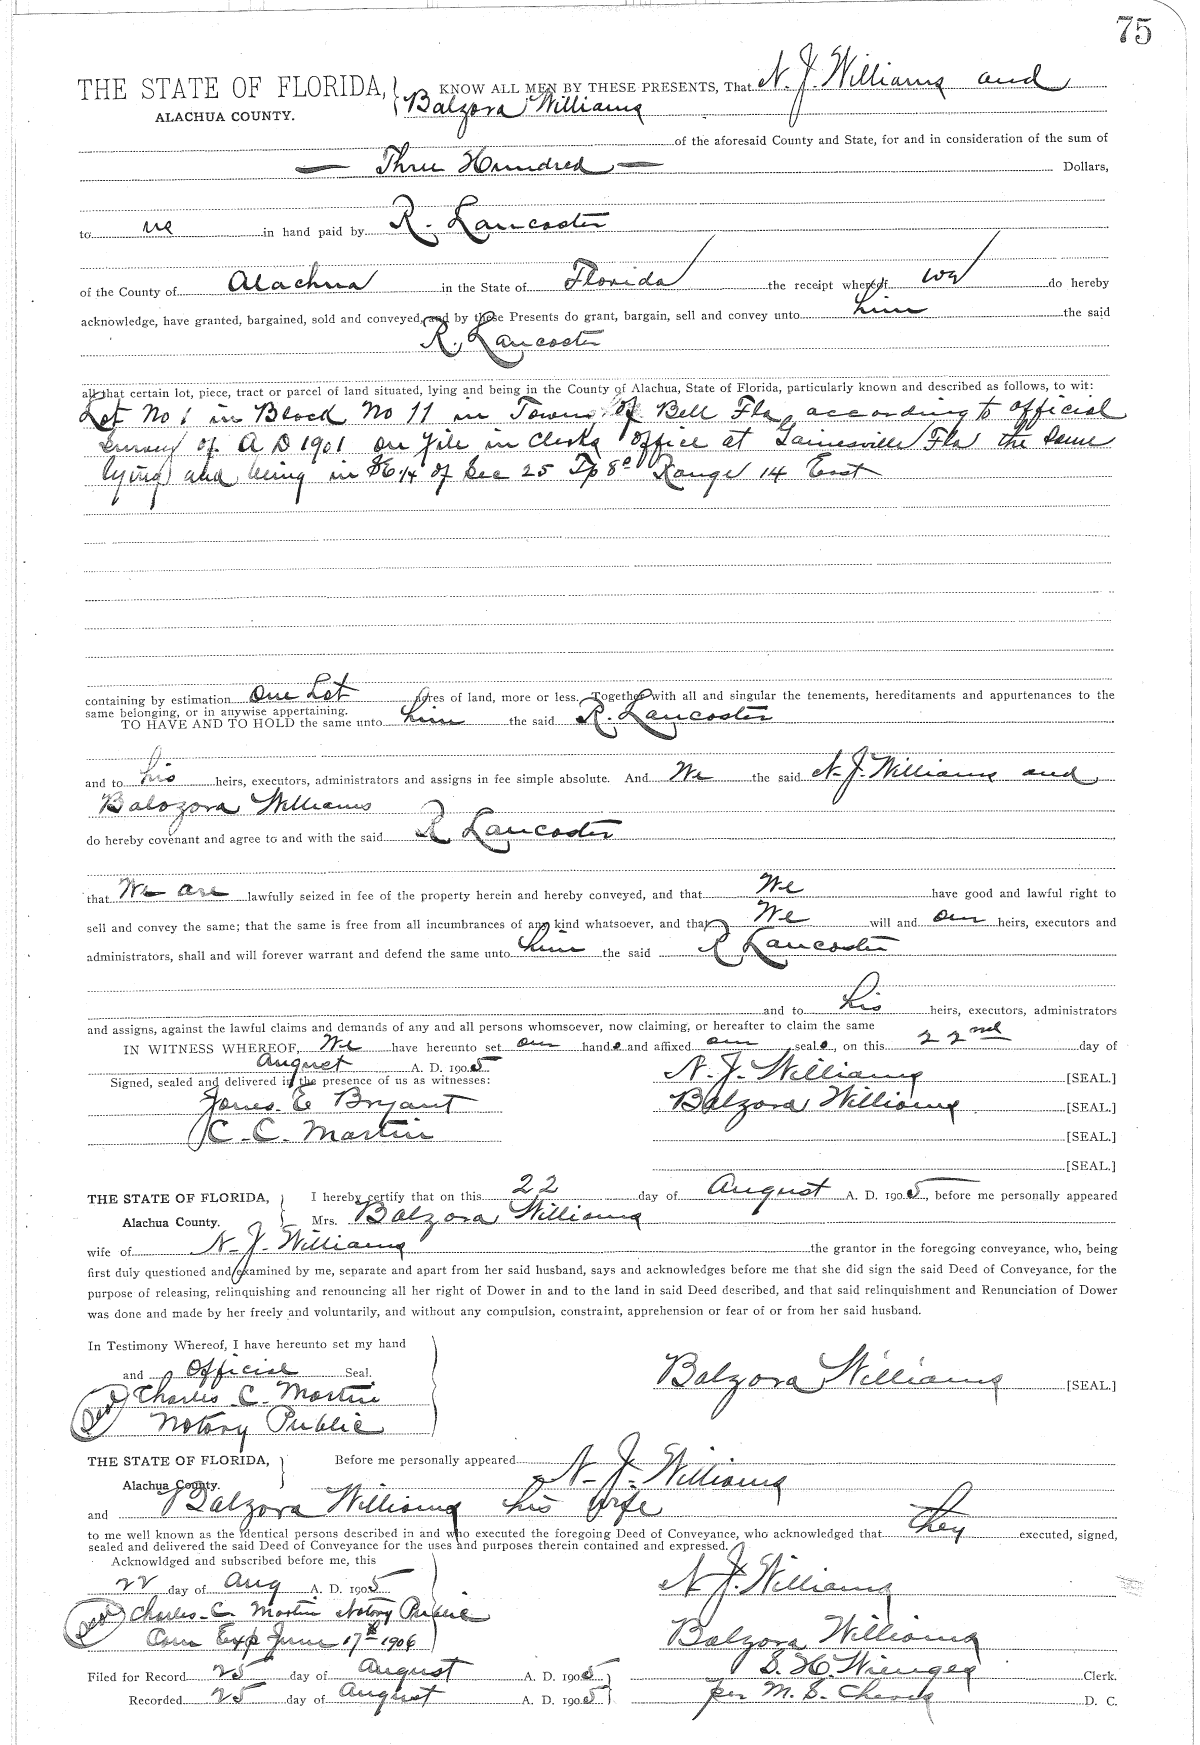 75
THE STATE OF FLORIDA, KNOW ALL MEN BY THESE PRESENTS, That N. J. Williams and
ALACHUA COUNTY. Balzora Williams
of the aforesaid County and State, for and in consideration of the sum of
— Three Hundred — Dollars,
to us in hand paid by R. Lancaster
of the County of Alachua in the State of Florida the receipt whereof we do hereby
acknowledge, have granted, bargained, sold and conveyed, and by these Presents do grant, bargain, sell and convey unto him the said
R. Lancaster
all that certain lot, piece, tract or parcel of land situated, lying and being in the County of Alachua, State of Florida, particularly known and described as follows, to wit:
Lot No 1 in Block No 11 in Town of Bell Fla, according to official
survey of A D 1901 on file in clerks office at Gainesville Fla the same
lying and being in SE 1/4 of Sec 25 Tp 8 S Range 14 East
containing by estimation One Lot Acres of land, more or less. Together with all and singular the tenements, hereditaments and appurtenances to the
same belonging, or in anywise appertaining.
TO HAVE AND TO HOLD the same unto him the said R. Lancaster
and to his heirs, executors, administrators and assigns in fee simple absolute. And We the said N. J. Williams and
Balozora Williams
do hereby covenant and agree to and with the said R Lancaster
that We are lawfully seized in fee of the property herein and hereby conveyed, and that We have good and lawful right to
sell and convey the same; that the same is free from all incumbrances of any kind whatsoever, and that We will and our heirs, executors and
administrators, shall and will forever warrant and defend the same unto him the said R Lancaster
and to his heirs, executors, administrators
and assigns, against the lawful claims and demands of any and all persons whomsoever, now claiming, or hereafter to claim the same
IN WITNESS WHEREOF, We have hereunto set our hands and affixed our seals, on this 22nd day of
August A. D. 1905
Signed, sealed and delivered in the presence of us as witnesses: N. J. Williams [SEAL.]
Jones. E Bryant Balzora Williams [SEAL.]
C. C. Martin [SEAL.]
[SEAL.]
THE STATE OF FLORIDA, I hereby certify that on this 22 day of August A. D. 1905, before me personally appeared
Alachua County. Mrs. Balzora Williams
wife of N. J. Williams the grantor in the foregoing conveyance, who, being
first duly questioned and examined by me, separate and apart from her said husband, says and acknowledges before me that she did sign the said Deed of Conveyance, for the
purpose of releasing, relinquishing and renouncing all her right of Dower in and to the land in said Deed described, and that said relinquishment and Renunciation of Dower
was done and made by her freely and voluntarily, and without any compulsion, constraint, apprehension or fear of or from her said husband.
In Testimony Whereof, I have hereunto set my hand
and Official Seal. Balzora Williams [SEAL.]
Seal Charles C. Martin
Notary Public
THE STATE OF FLORIDA, Before me personally appeared N. J. Williams
Alachua County.
and Balzora Williams his wife
to me well known as the identical persons described in and who executed the foregoing Deed of Conveyance, who acknowledged that they executed, signed,
sealed and delivered the said Deed of Conveyance for the uses and purposes therein contained and expressed.
Acknowldged and subscribed before me, this
22 day of Aug A. D. 1905 N J. Williams
Seal Charles C. Martin Notary Public
Com Exp June 17th 1906 Balzora Williams
Filed for Record 25 day of August A. D. 1905 S. H. Wienges Clerk.
Recorded 25 day of August A. D. 1905 per M. S. D. C.